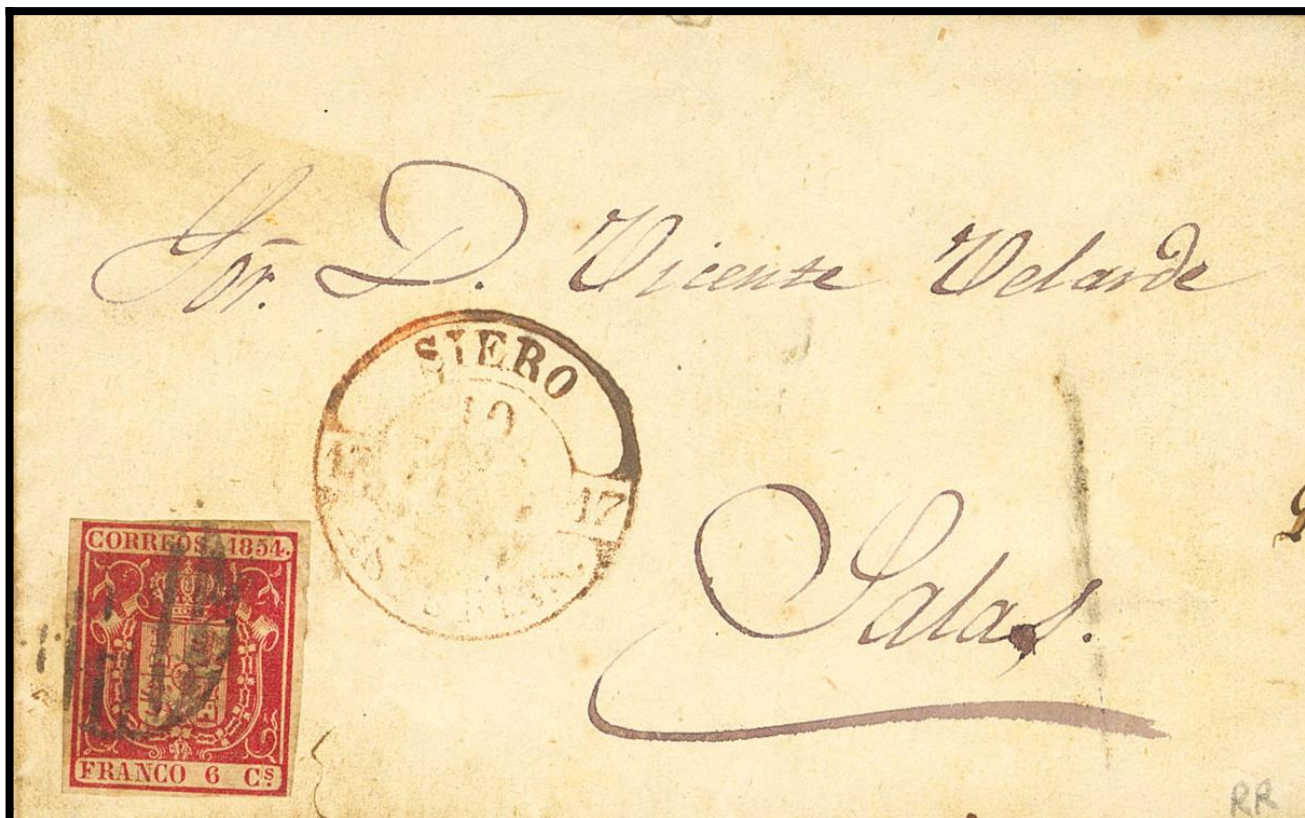 Sor. D. Vicente Velarde
SIERO
10
17 17
Salas.
CORREOS 1854.
FRANCO 6 Cs
RR